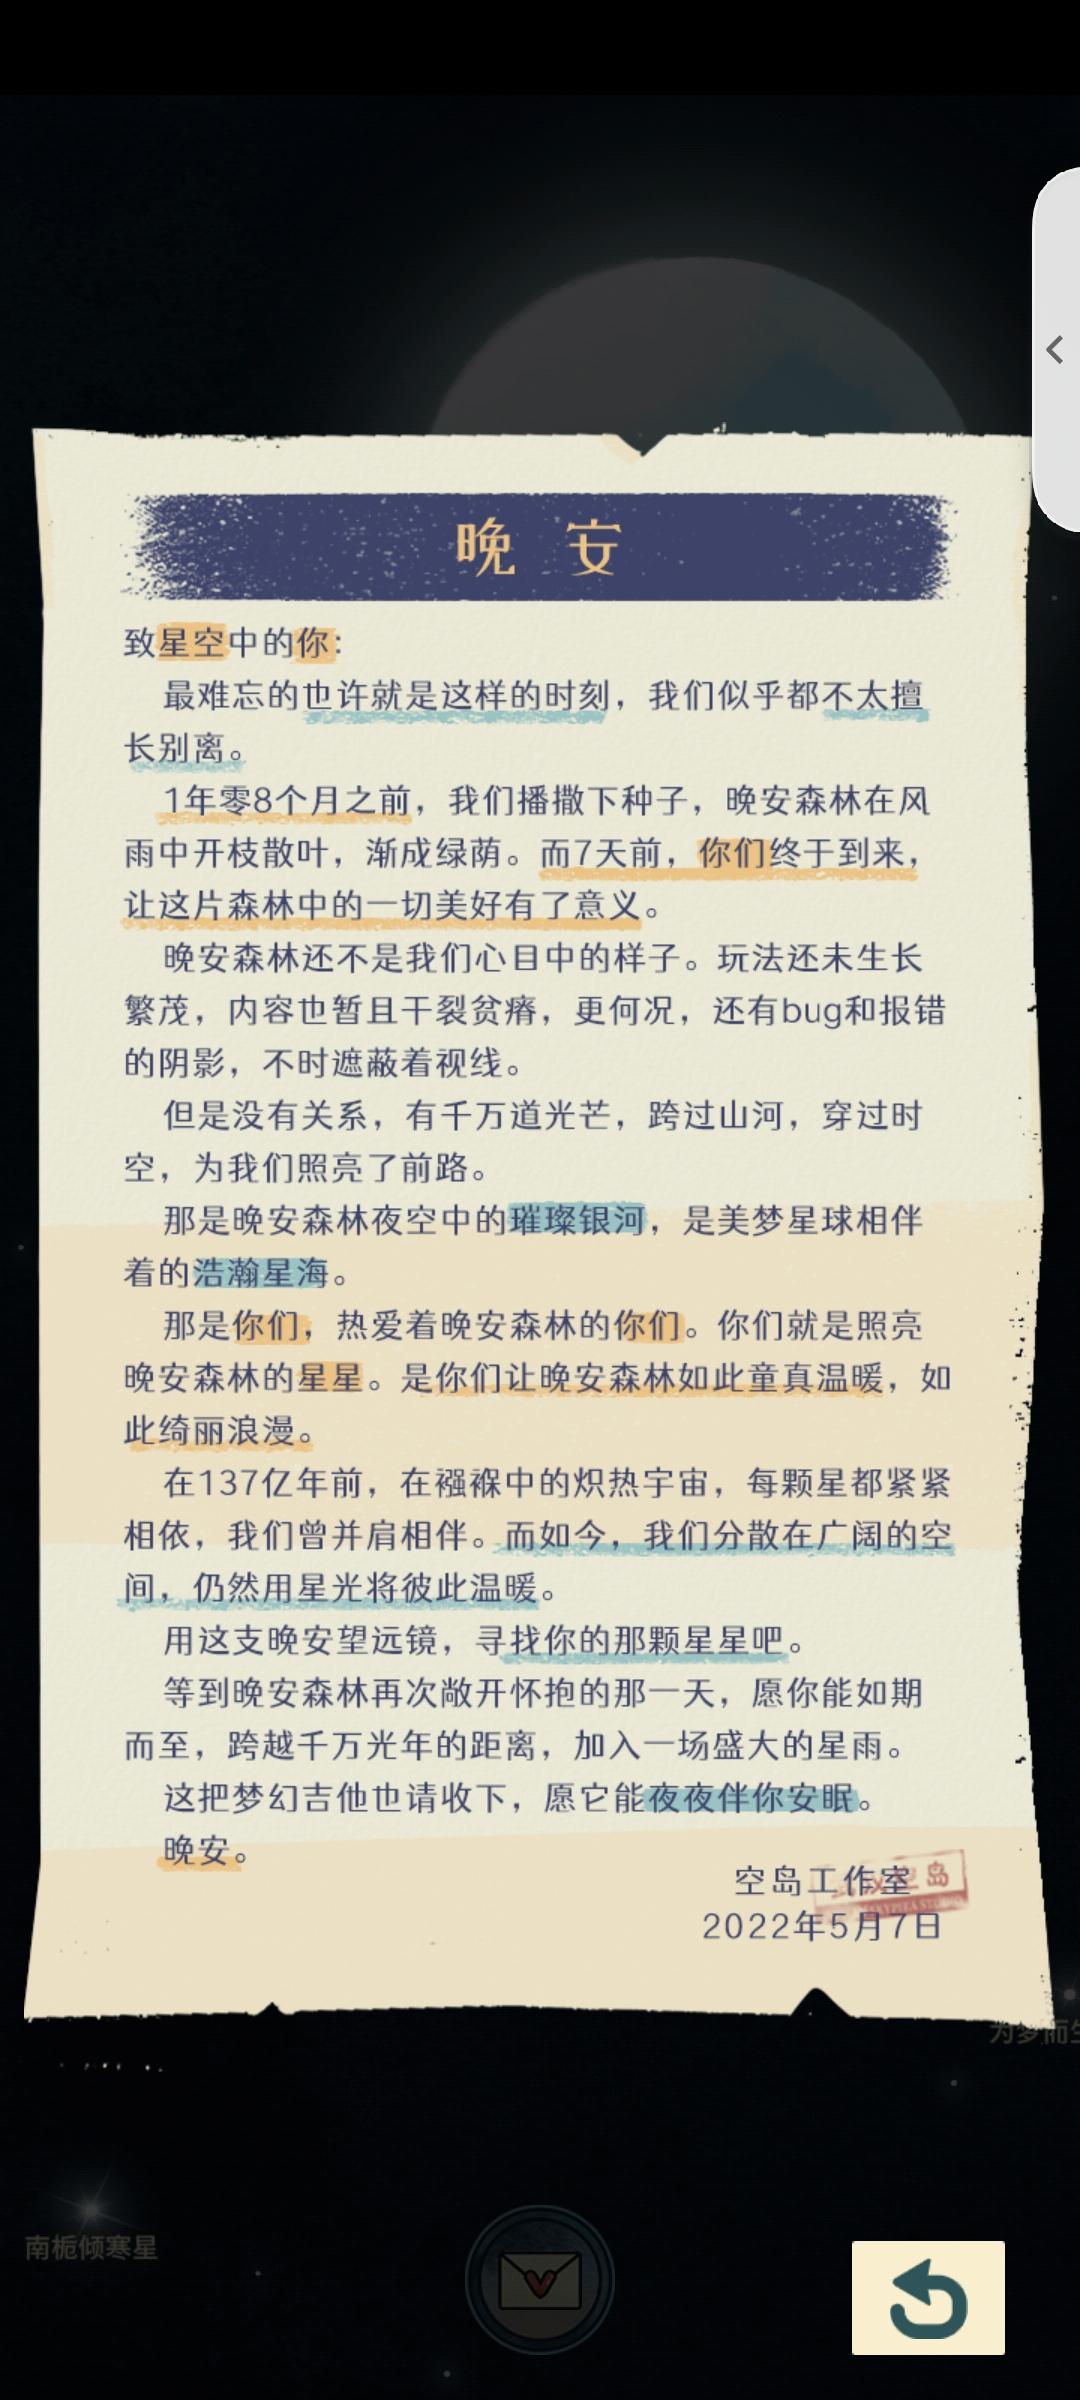 晚 安
致星空中的你：
最难忘的也许就是这样的时刻，我们似乎都不太擅
长别离。
1年零8个月之前，我们播撒下种子，晚安森林在风
雨中开枝散叶，渐成绿荫。而7天前，你们终于到来，
让这片森林中的一切美好有了意义。
晚安森林还不是我们心目中的样子。玩法还未生长
繁茂，内容也暂且干裂贫瘠，更何况，还有bug和报错
的阴影，不时遮蔽着视线。
但是没有关系，有千万道光芒，跨过山河，穿过时
空，为我们照亮了前路。
那是晚安森林夜空中的璀璨银河，是美梦星球相伴
着的浩瀚星海。
那是你们，热爱着晚安森林的你们。你们就是照亮
晚安森林的星星。是你们让晚安森林如此童真温暖，如
此绮丽浪漫。
在137亿年前，在襁褓中的炽热宇宙，每颗星都紧紧
相依，我们曾并肩相伴。而如今，我们分散在广阔的空
间，仍然用星光将彼此温暖。
用这支晚安望远镜，寻找你的那颗星星吧。
等到晚安森林再次敞开怀抱的那一天，愿你能如期
而至，跨越千万光年的距离，加入一场盛大的星雨。
这把梦幻吉他也请收下，愿它能夜夜伴你安眠。
晚安。
空岛工作室
2022年5月7日
为梦而生
南栀倾寒星